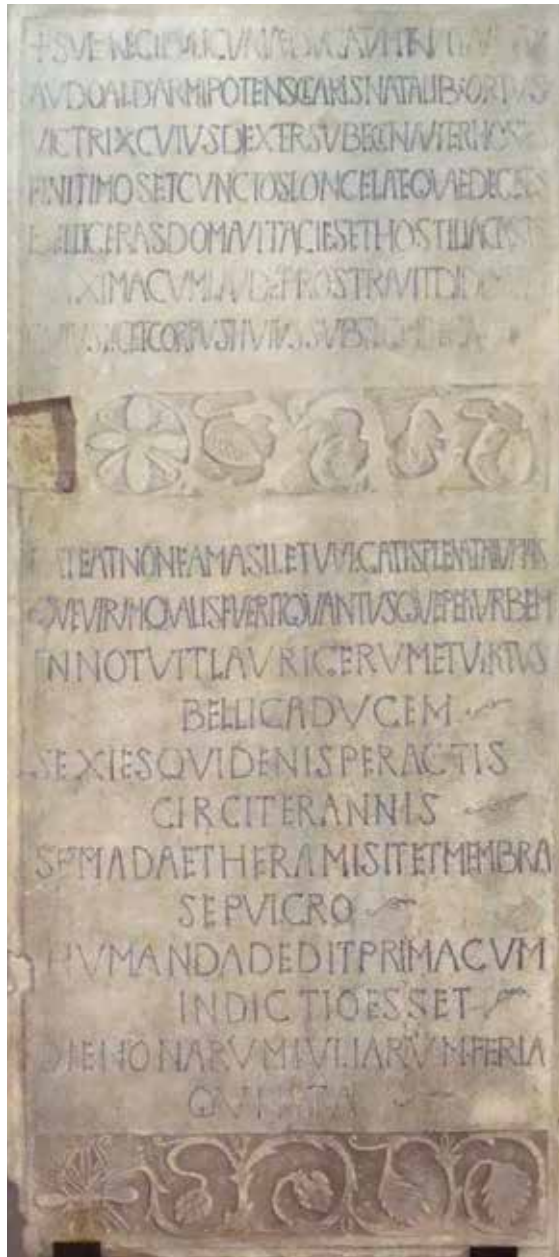 AUDOALDARMIPOTENSCLARISNATALIB·ORTUS
VICTRIXCVIVSDEXTERSVBEGITNAVITERHOSTES
FINITIMOSETCVNCTOSLONGELATEQVAEDEGENTES
BELLIGERASDOMAVITACIESETHOSTILIACASTRA
XIMACVMLAVDEPROSTRAVITDID
CORPVSHVIVSSVB
TEATNONFAMASILETVVLGATISPLENATRIVMPHIS
QVEVIRVMQVALISFVERITQVANTVSQVEPERVRBEM
INNOTVITLAVRIGERVMETVIRTVS
BELLICADVCEM
SEXIESQVIDENISPERACTIS
CIRCITERANNIS
SPMADAETHERAMISITETMEMBRA
SEPVLCRO
HVMANDADEDITPRIMACVM
INDICTIOESSET
DIENONARVMIVLIARVMFERIA
QVINTA